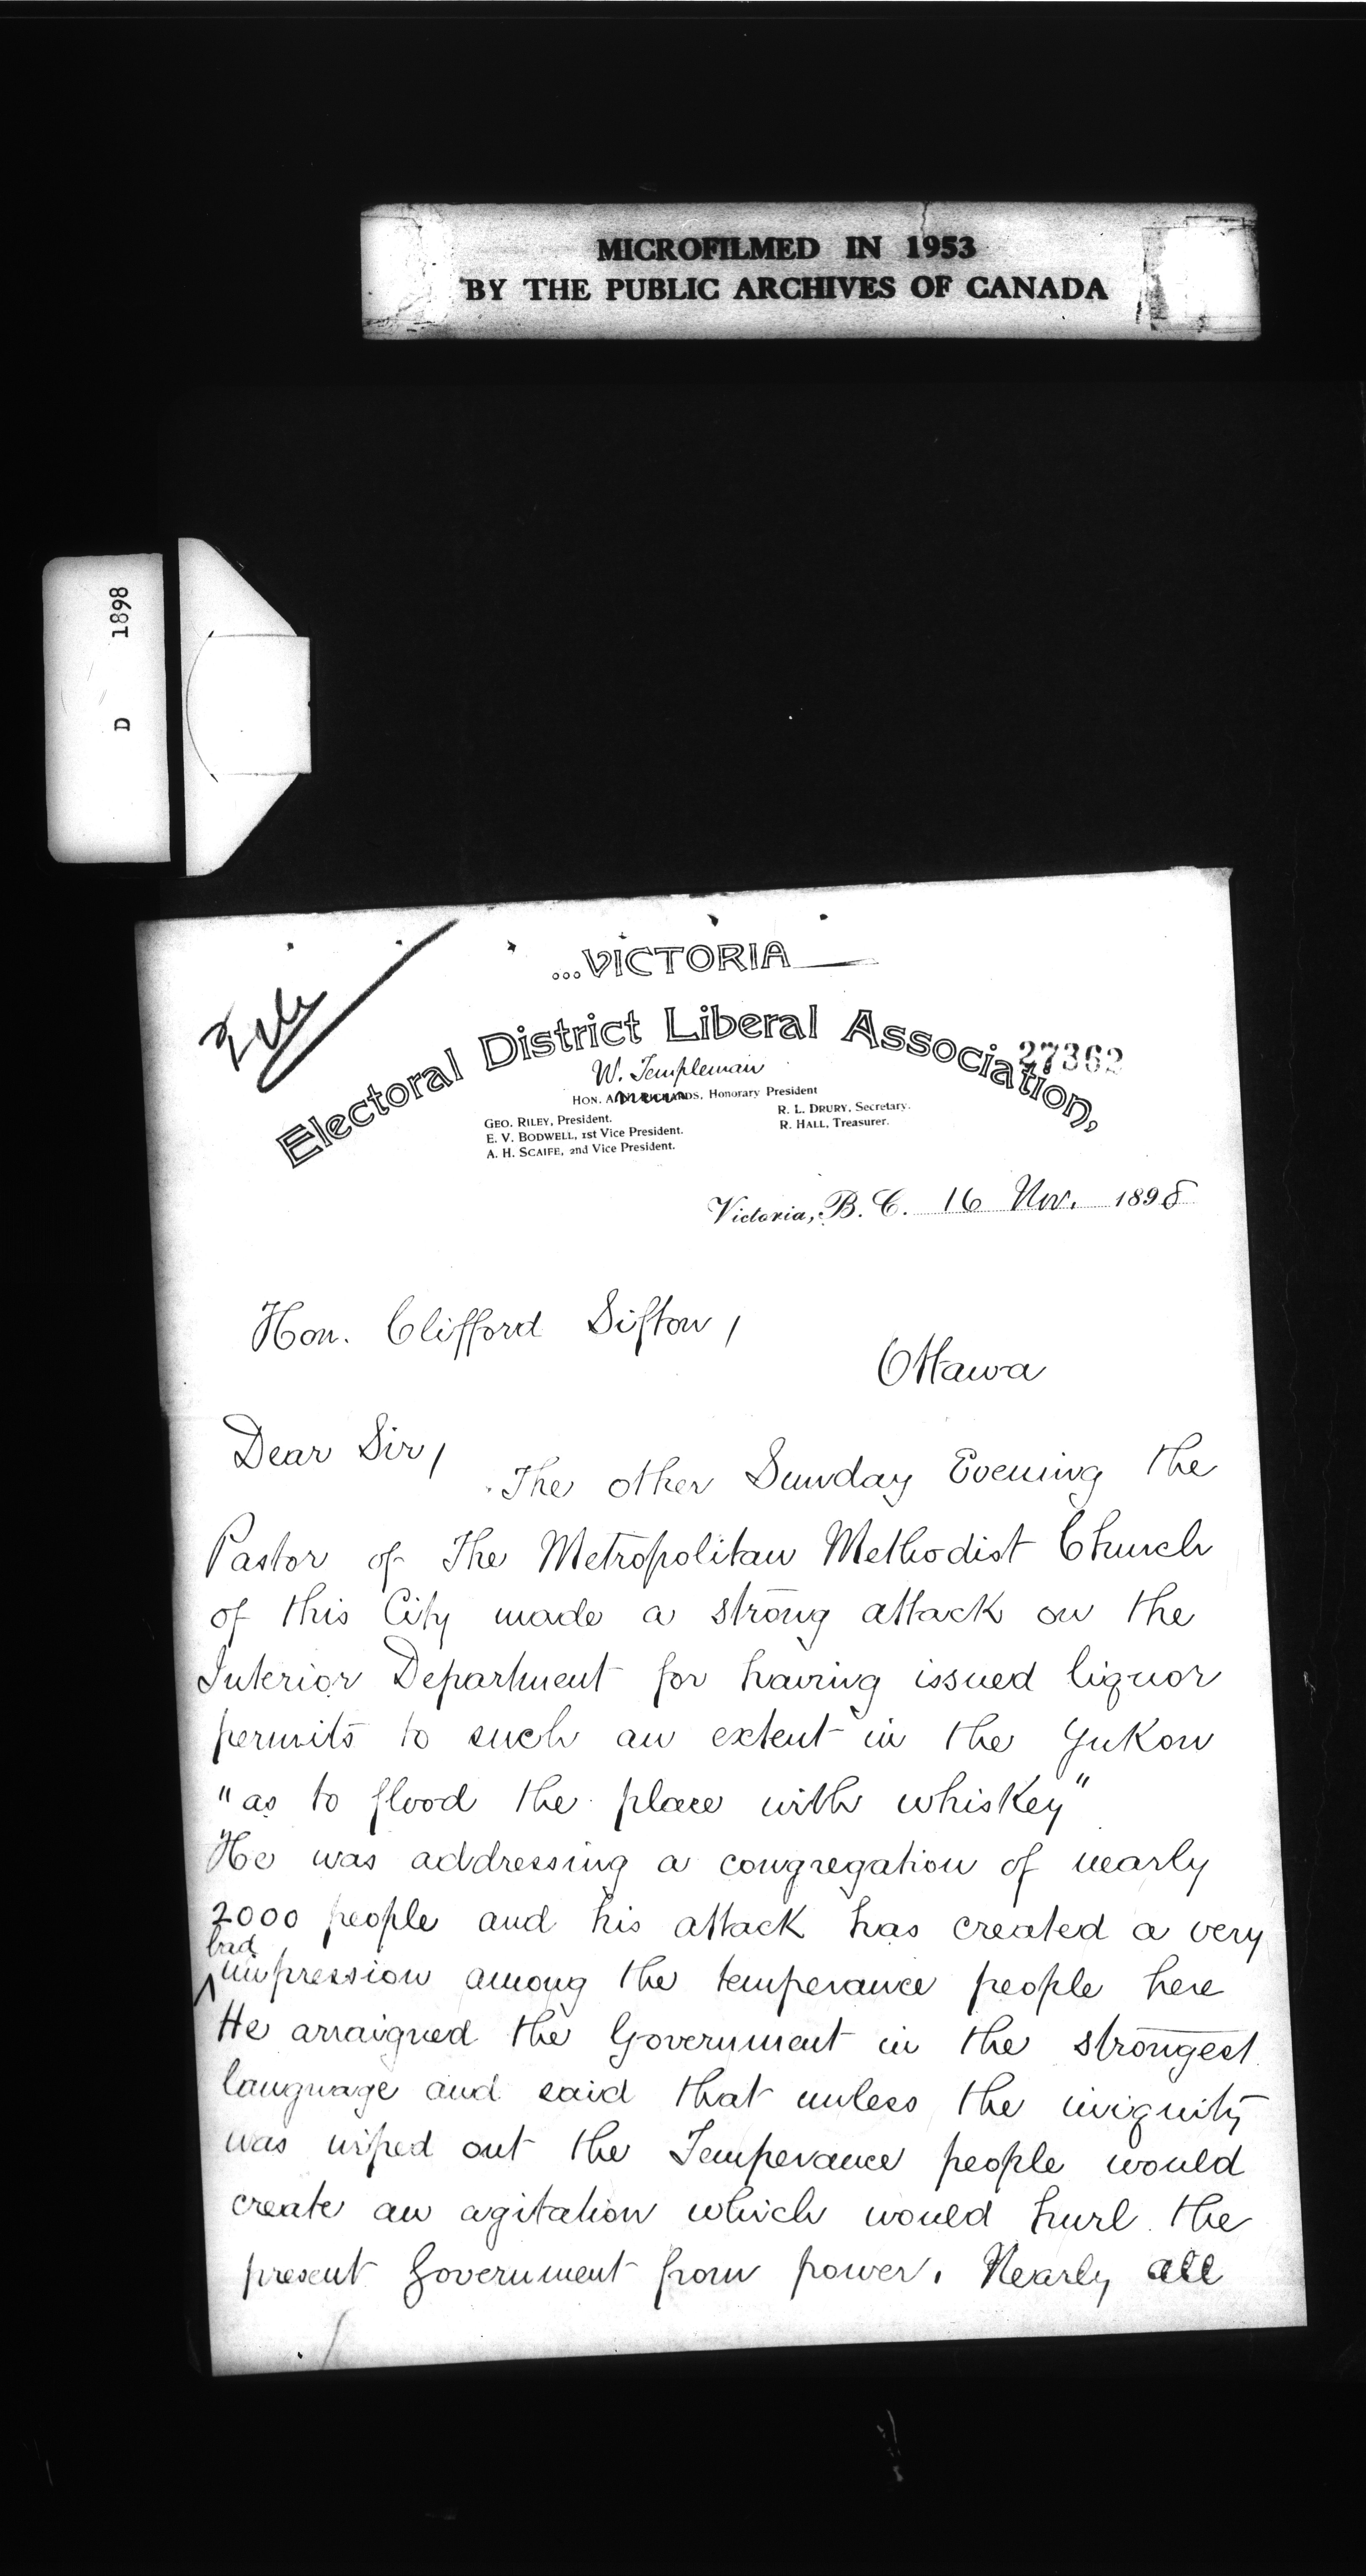 MICROFILMED IN 1953
BY THE PUBLIC ARCHIVES OF CANADA
D 1898
File
...VICTORIA
Electoral District Liberal Association,
27362
W. Templeman
HON. A. , Honorary President
GEO. RILEY, President.
E. V. BODWELL, 1st Vice President.
A. H. SCAIFE, 2nd Vice President.
R. L. DRURY, Secretary.
R. HALL, Treasurer.
Victoria, B. C. 16 Nov. 1898
Hon. Clifford Sifton,
Ottawa
Dear Sir,
The other Sunday Evening the
Pastor of The Metropolitan Methodist Church
of this City made a strong attack on the
Interior Department for having issued liquor
permits to such an extent in the Yukon
"as to flood the place with whiskey"
He was addressing a congregation of nearly
2000 people and his attack has created a very
bad
impression among the temperance people here
He arraigned the Government in the strongest
language and said that unless the iniquity
was wiped out the Temperance people would
create an agitation which would hurl the
present Government from power. Nearly all